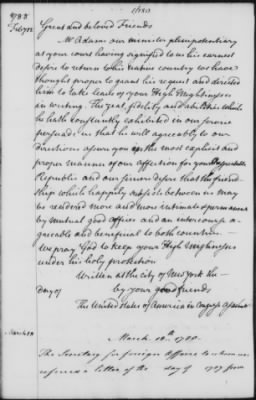 1788
Great and beloved Friends
Mr Adams our minister plenipotentiary
at your court having signified to us his earnest
desire to return to his native country we have
thought proper to grant his request and directed
him to take leave of your High Mightinesses
in writing. The zeal, fidelity and abilities which
he hath constantly exhibited in our service
persuade us that he will agreeably to our
directions assure you in the most explicit and
proper manner of our affection for your Republic
and our sincere desire that the friend
ship which happily subsists between us may
be rendered more and more intimate & permanent
by mutual good offices and an intercourse a-
greeable and beneficial to both countries
We pray God to keep your High Mightinesses
under his holy protection
Written at the city of New York the
day of
by your good friends
The United States of America in Congress Assembled
March 12th 1788.
The Secretary for foreign Affairs to whom was
referred a letter of the day of 1787 from